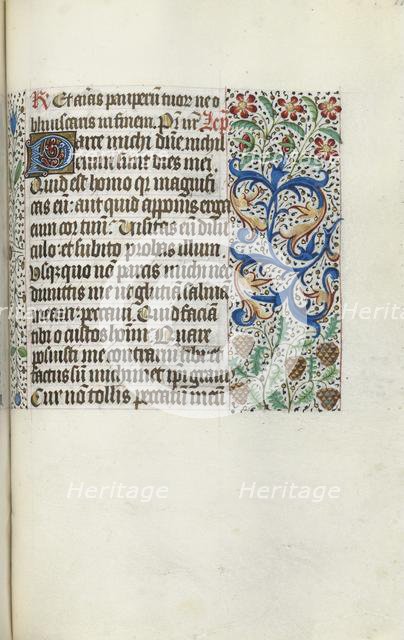 R. Et aīas pauperū tuoꝝ ne o
bliuiscaris in finem. Pͬ nͬ Lep
Parce michi dn̄e nichil
enim sunt dies mei
Quid est homo qꝛ magnifi
cas eū: aut quid apponis erga
eum cor tuū. Visitas eū dilu
culo: et subito probas illum
Usqꝫ quo nō parcis michi ne
dimittis me ut glutiā saliuā
meam: peccaui. Quid faciā
tibi o custos hoīm. Quare
posuisti me contrariū tibi et
factus sū michimet ipi grauis
Cur nō tollis peccatū meū
Heritage
Heritage
Heritage
Heritage